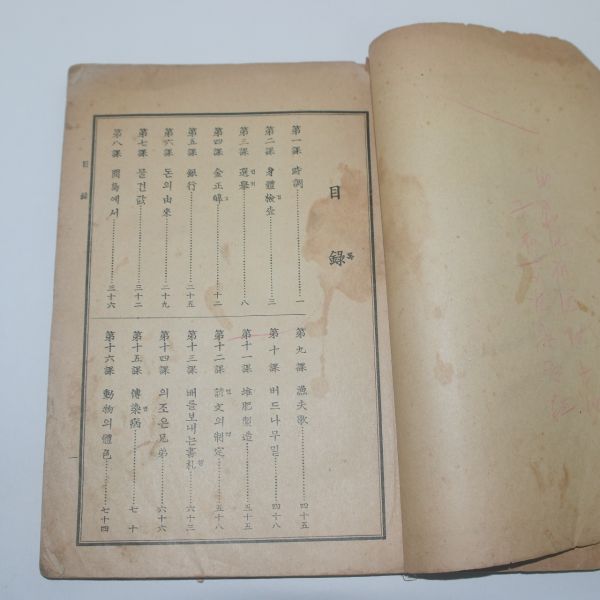 目錄
第一課 時調 一
第二課 身體檢查 三
第三課 選擧 八
第四課 金正皥 十二
第五課 銀行 二十五
第六課 돈의由來 二十九
第七課 물건값 三十二
第八課 間島에서 三十六
第九課 漁夫歌 四十五
第十課 버드나무밑 四十八
第十一課 堆肥製造 五十五
第十二課 諺文의制定 五十八
第十三課 배를보내는書札 六十三
第十四課 의조은兄弟 六十六
第十五課 傳染病 七十
第十六課 動物의體色 七十四
目錄
一